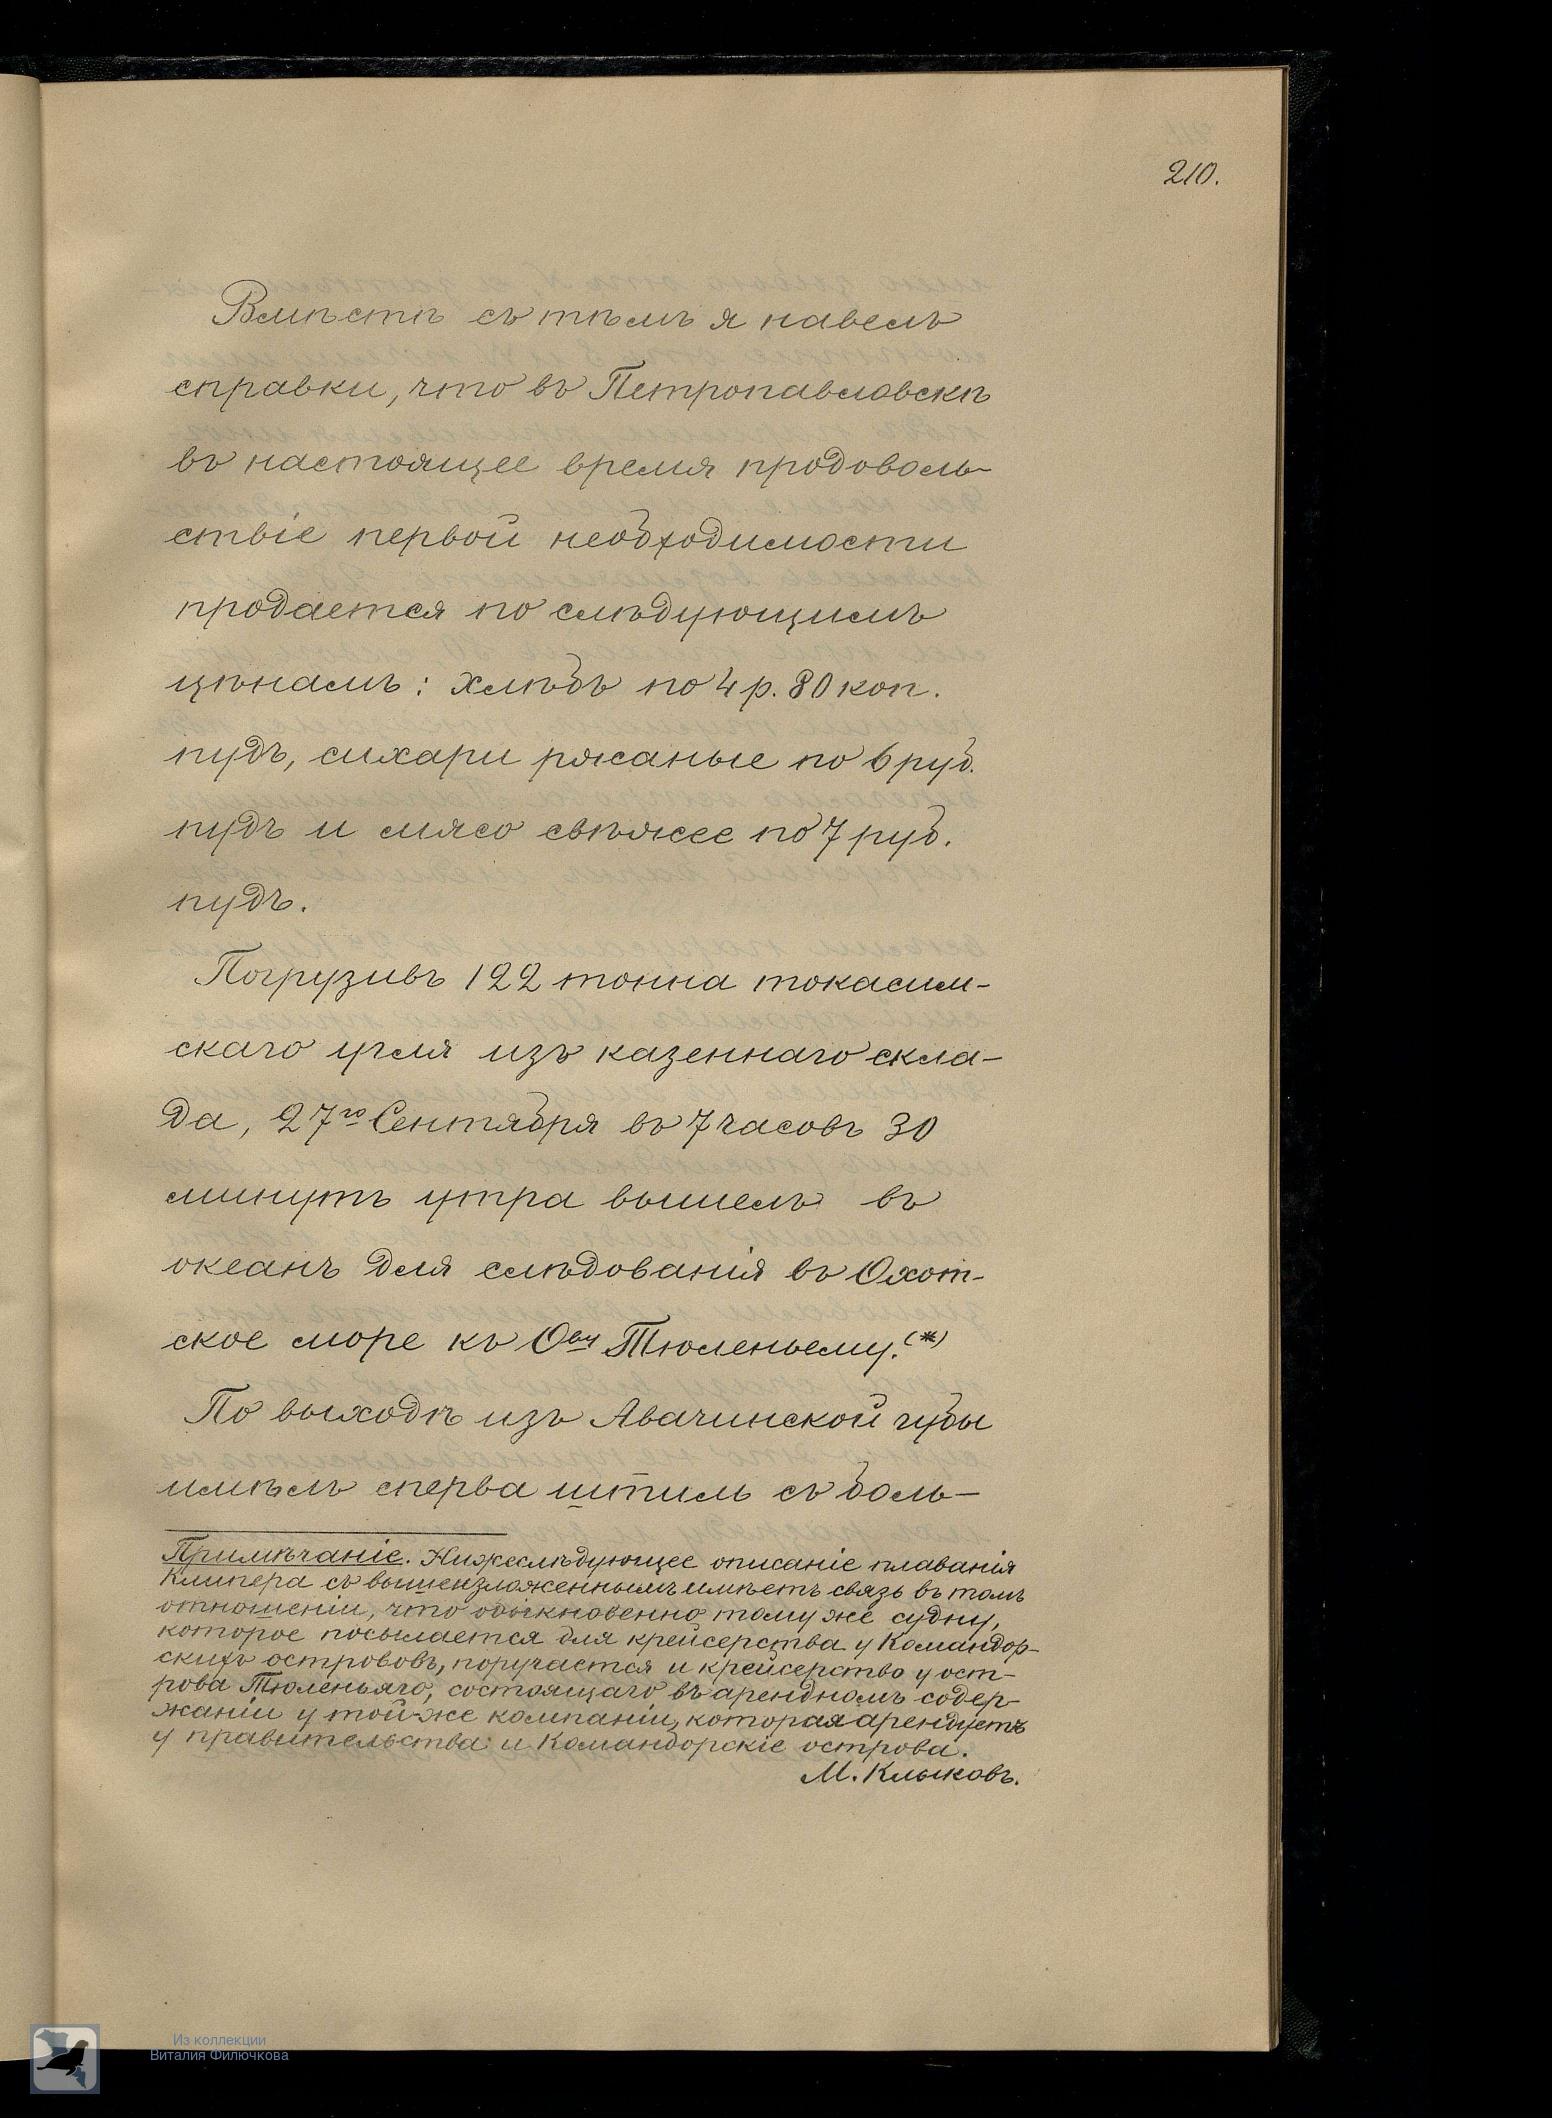 210.
Вмѣстѣ съ тѣмъ я навелъ
справки, что въ Петропавловскѣ
въ настоящее время продоволь-
ствіе первой необходимости
продается по слѣдующимъ
цѣнамъ: хлѣбъ по 4 р. 80 коп.
пудъ, сухари ржаные по 6 руб.
пудъ и мясо свѣжее по 7 руб.
пудъ.
Погрузивъ 122 тонна токасим-
скаго угля изъ казеннаго скла-
да, 27го Сентября въ 7 часовъ 30
минутъ утра вышелъ въ
океанъ для слѣдованія въ Охот-
ское море къ Ову Тюленьему.(*)
По выходѣ изъ Авачинской губы
имѣлъ сперва штиль съ боль-
Примѣчаніе. Нижеслѣдующее описаніе плаванія
клипера съ вышеизложеннымъ имѣетъ связь въ томъ
отношеніи, что обыкновенно тому же судну,
которое посылается для крейсерства у Командор-
скихъ острововъ, поручается и крейсерство у ост-
рова Тюленьяго, состоящаго въ арендномъ содер-
жаніи у той-же компаніи, которая арендуетъ
у правительства и Командорскіе острова.
М. Клыковъ.
Из коллекции
Виталия Филючкова